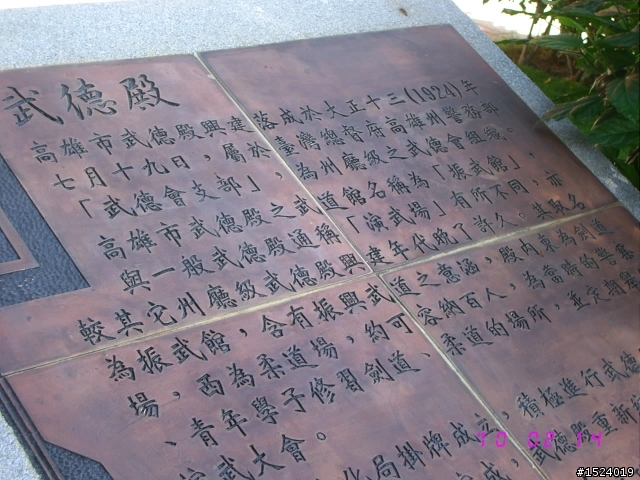 武德殿
高雄市武德殿興建落成於大正十三(1924)年
七月十九日，屬於臺灣總督府高雄州警務部
「武德會支部」，為州廳級之武德會組織。
高雄市武德殿之武道館名稱為「振武館」，
與一般武德殿通稱「演武場」有所不同，亦
較其它州廳級武德殿興建年代晚了許久。其取名
為振武館，含有振興武道之意涵，殿內東為劍道
場，西為柔道場，約可容納百人，為當時的警察
、青年學子修習劍道、柔道的場所，並定期舉
武大會。
化局掛牌成立，積極進行武德
武德殿重新
10 02 14
#1524019